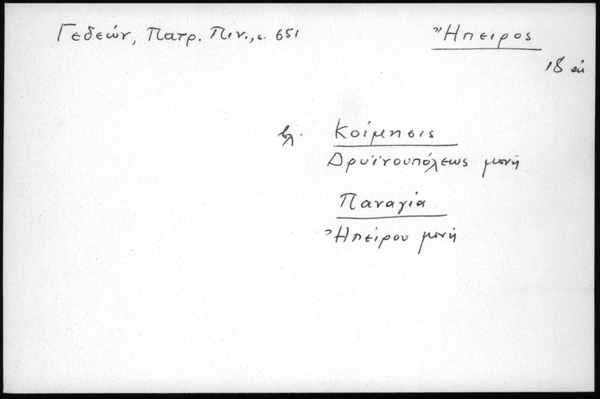 Γεδεών, Πατρ. Πιν., σ. 651
Ἤπειρος
18 αι
βλ. Κοίμησις
Δρυϊνουπόλεως μονή
Παναγία
Ἠπείρου μονή